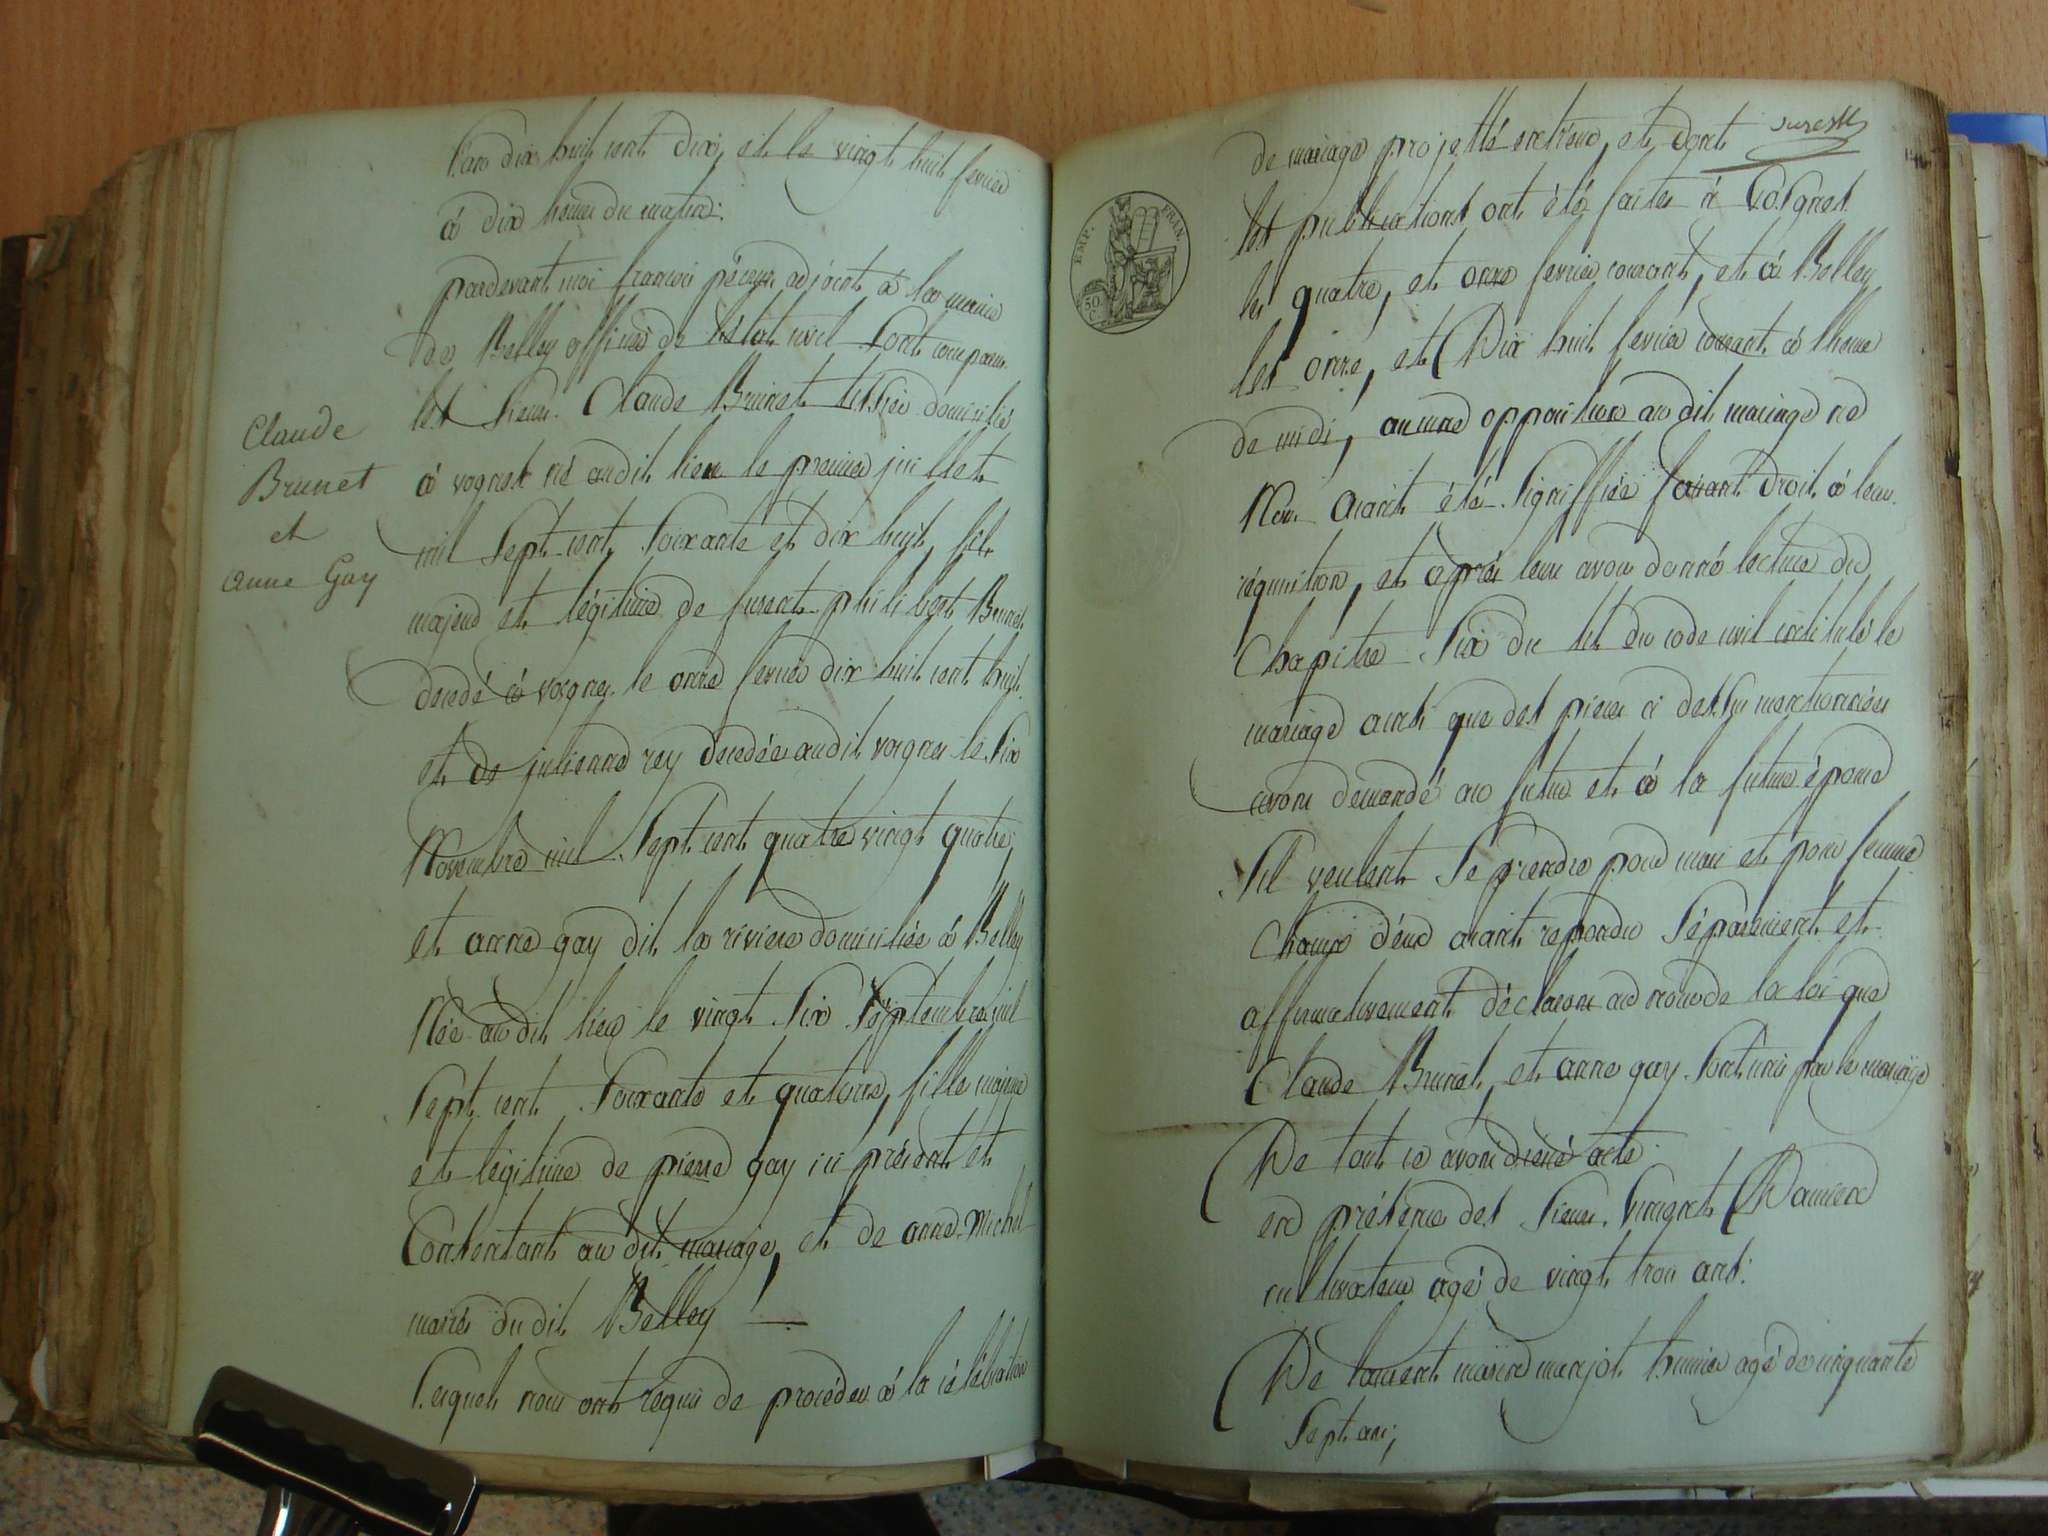 L'an dix huit cent dix, et le vingt huit fevrier
à dix heures du matin:
pardevant moi françois adjoint à la mairie
de Belley officier de l'état civil sont comparus
les sieurs Claude Brunet domicilié
à vognes né audit lieu le premier juillet
mil sept cent soixante et dix huit, fils
majeur et légitime de philibert Brunet
decedé à vognes le onze fevrier dix huit cent huit
et de julienne rey decedée audit vognes le six
Novembre mil sept cent quatre vingt quatre,
et anne gay dit la riviere domiciliée à Belley
Née audit lieu le vingt six septembre mil
sept cent soixante et quatorze, fille majeure
et légitime de pierre gay ici présent et
Consentant audit mariage, et de anne Michel
mariés dudit Belley
lesquels nous ont requis de procéder à la célébration
Claude
Brunet
et
anne Gay
de mariage projetté entr'eux, et dont
les publications ont été faites à Vognes
le quatre, et onze fevrier courant, et à Belley
les onze, et Dix huit fevrier courant à l'heure
de midi, aucune opposition audit mariage ne
Nous aiant été signiffiée faisant droit à leur
réquisition, et après leur avoir donné lecture du
Chapitre six du tit du code civil intitulé le
mariage ainsi que des pieces ci dessus mentionnées
avons demandé au futur et à la future épouse
s'ils veulent se prendre pour mari et pour femme
Chacun d'eux aiant repondu séparement et
affirmativement déclarons au nom de la loi que
Claude Brunet, et anne gay sont unis par le mariage
De tout ce avons dressé acte
en présence des sieurs
cultivateur agé de vingt trois ans:
De laurent agé de cinquante
sept ans;
EMP. FRAN.
50
C.